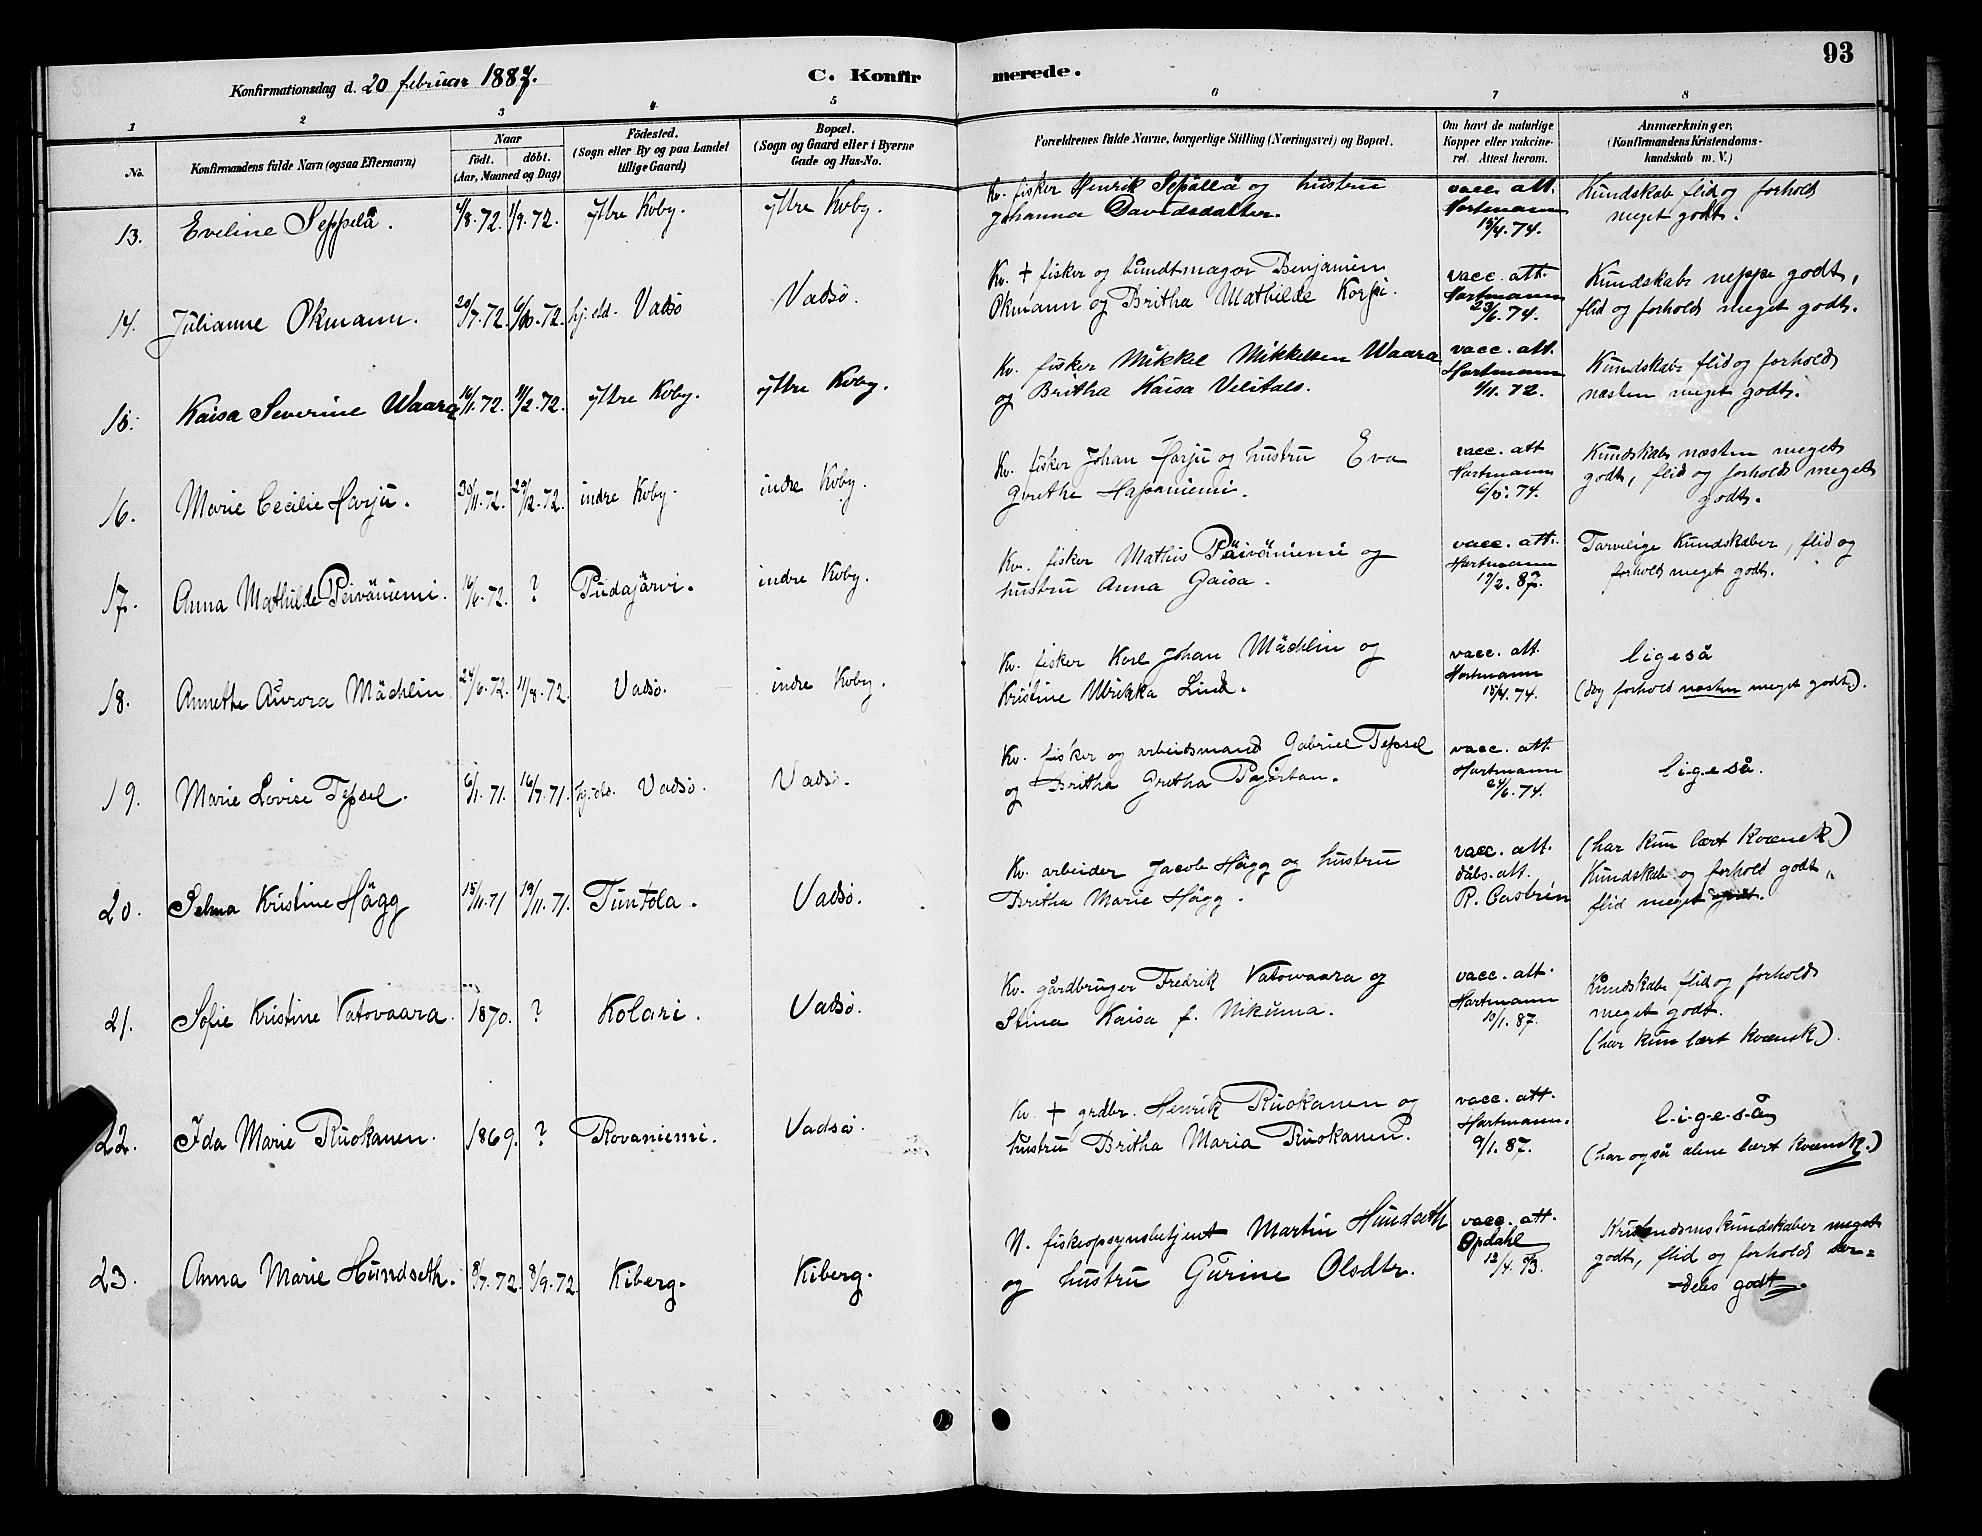 93
Konfirmationsdag d. 20 februar 1887.
C. Konfirmerede.
1 2 3 4 5 6 7 8
No.
Konfirmandens fulde Navn (ogsaa Efternavn)
Naar
födt. döbt.
(Aar, Maaned og Dag)
Födested.
(Sogn eller By og paa Landet
tillige Gaard)
Bopæl.
(Sogn og Gaard eller i Byerne
Gade og Hus-No.
Forældrenes fulde Navne, borgerlige Stilling (Næringsvei) og Bopæl.
Om havt de naturlige
Kopper eller vakcine-
ret. Attest herom.
Anmærkninger,
(Konfirmandens Kristendoms-
kundskab m. V.)
13. Eveline Seppelä. 4/8.72. 1/9.72. ytre Koby. ytre Koby.
Kv. fisker Henrik Sepällä og hustru
Johanna Davidsdatter.
vacc. att.
Hartmann
15/4.74.
Kundskab flid og forhold
meget godt.
14. Julianne Okmann. 20/7.72. 6/10.72. hj. død. Vadsö Vadsö.
Kv. + fisker og bundtmager Benjamin
Okmann og Britha Mathilde Korpi.
vacc. att.
Hartmann
23/6.74.
Kundskab neppe godt,
flid og forhold meget godt.
15. Kaisa Severine Waara 16/1.72. 11/2.72. ytre Koby. ytre Koby.
Kv. fisker Mikkel Mikkelsen Waara
og Britha Kaisa Velitalo.
vacc. att.
Hartmann
9/11.72.
Kundskab flid og forhold
næsten meget godt.
16. Marie Cecilie Harju. 30/11.72. 29/12.72. indre Koby. indre Koby.
Kv. fisker Johan Harju og hustru Eva
Grethe Hapaniemi.
vacc. att
Hartmann
6/5.74.
Kundskab næsten meget
godt, flid og forhold meget
godt.
17. Anna Mathilde Peiväniemi. 16/6.72. ? Pudajärvi. indre Koby.
Kv. fisker Mathis Päiväniemi og
hustru Anna Gaisa.
vacc. att.
Hartmann
19/2.87.
Tarvelige Kundskaber, flid og
forhold meget godt.
18. Annette Aurora Mächlin 24/6.72. 11/8.72. Vadsö. indre Koby.
Kv. fisker Karl Johan Mächlin og
Kristine Ulrikka Lind.
vacc. att.
Hartmann
15/4.74.
ligeså
(dog forhold næsten meget godt).
19. Marie Lovise Tepsel. 6/1.71. 16/7.71. hj. døb. Vadsö. Vadsö.
Kv. fisker og arbeidsmand Gabriel Tepsel
og Britha Gretha
vacc. att.
Hartmann
24/6.74.
ligeså.
20. Selma Kristine Hägg 15/11.71 19/11.71. Tuntola. Vadsö.
Kv. arbeider Jacob Hägg og hustru
Britha Marie Hägg.
vacc. att.
dåbs. att.
R. Castrén
(har kun lært Kvænsk)
Kundskab og forhold godt,
flid meget godt.
21. Sofie Kristine Vatovaara. 1870. ? Kolari. Vadsö.
Kv. gårdbruger Fredrik Vatovaara og
Stina Kaisa f. Nikunna.
vacc. att.
Hartmann
10/1.87.
Kundskab flid og forhold
meget godt.
(har kun lært Kvænsk).
22. Ida Marie Ruokanen. 1869. ? Rovaniemi. Vadsö.
Kv. + grdbr. Henrik Ruokanen og
hustru Britha Maria Ruokanen.
vacc. att.
Hartmann.
9/1.87.
ligeså
(har også alene lært Kvænsk.)
23. Anna Marie Hundseth. 8/7.72. 8/9.72. Kiberg. Kiberg.
N. fiskeopsynsbetjent Martin Hundseth
og hustru Gurine Olsdtr.
vacc. att.
Opdahl
12/4.
Kristendomskundskaber meget
godt, flid og forhold sær=
deles godt.